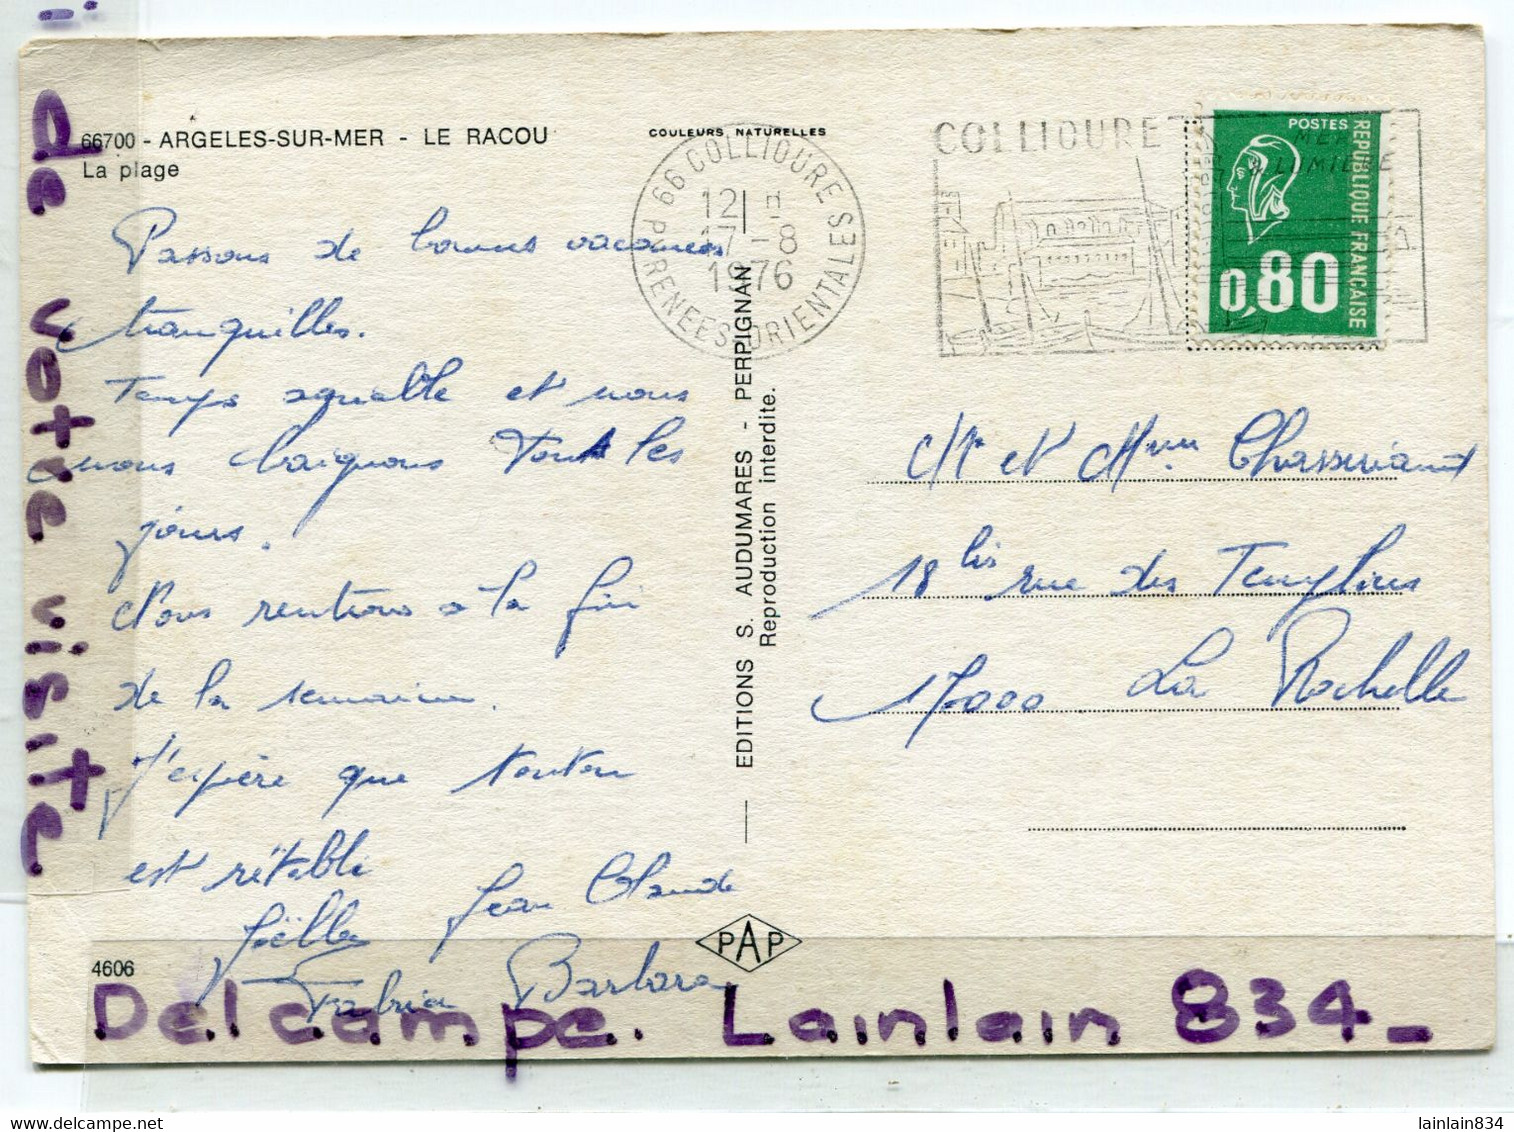 66700 - ARGELES-SUR-MER - LE RACOU
La plage
COULEURS NATURELLES
66 COLLIOURE
12 H
17-8
1976
PYRENEES ORIENTALES
COLLIOURE
MER
LUMIERE
POSTES
REPUBLIQUE FRANÇAISE
0,80
Passons de bonnes vacances
tranquilles.
Temps agréable et nous
nous baignons tous les
jours.
Nous rentrons à la fin
de la semaine.
J'espère que tonton
est rétabli
Joëlle Jean Claude
Fabrice Barbara
EDITIONS S. AUDUMARES - PERPIGNAN
Reproduction interdite.
Mr et Mme
18 bis rue des Templiers
17000 La Rochelle
PAP
4606
de votre visite.
Delcampe. Lainlain 834_
lainlain834